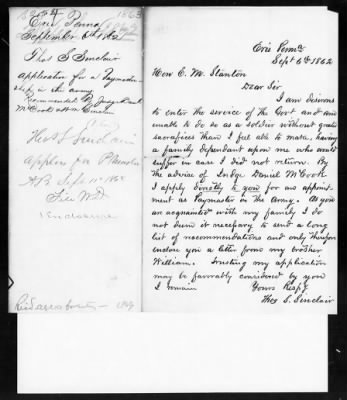 Erie Penna
September 6th 1862
Thos S. Sinclair
application for a Paymaster
ship in the army
Recommended by Judge Danl
McCook & Wm Sinclair
Thos S Sinclair
File
1 Enclosure
Erie Penna
Sept 6th 1862
Hon E. M. Stanton
Dear Sir
I am desirous
to enter the service of the Govt and am
unable to do so as a soldier without great
sacrafices than I feel able to make, having
a family dependant upon me who would
suffer in case I did not return. By
the advice of Judge Daniel McCook
I apply directly to you for an appoint-
ment as Paymaster in the Army. As you
are acquainted with my family I do
not deem it necessary to send a long
list of recommendations and only therefore
enclose you a letter from my brother
William. Trusting my application
may be favorably considered by you
I remain Yours Respy
Thos S. Sinclair